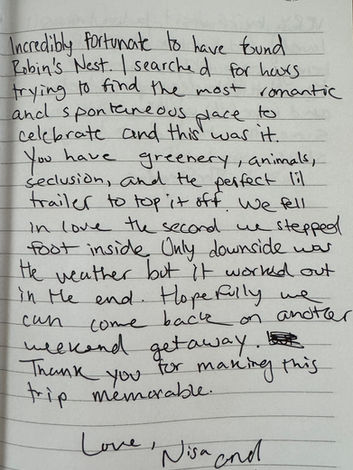 Incredibly fortunate to have found
Robin's Nest. I searched for hours
trying to find the most romantic
and spontaneous place to
celebrate and this was it.
You have greenery, animals,
seclusion, and the perfect lil
trailer to top it off. We fell
in love the second we stepped
foot inside. Only downside was
the weather but it worked out
in the end. Hopefully we
can come back on another
weekend getaway.
Thank you for making this
trip memorable.
Love, Nisa and